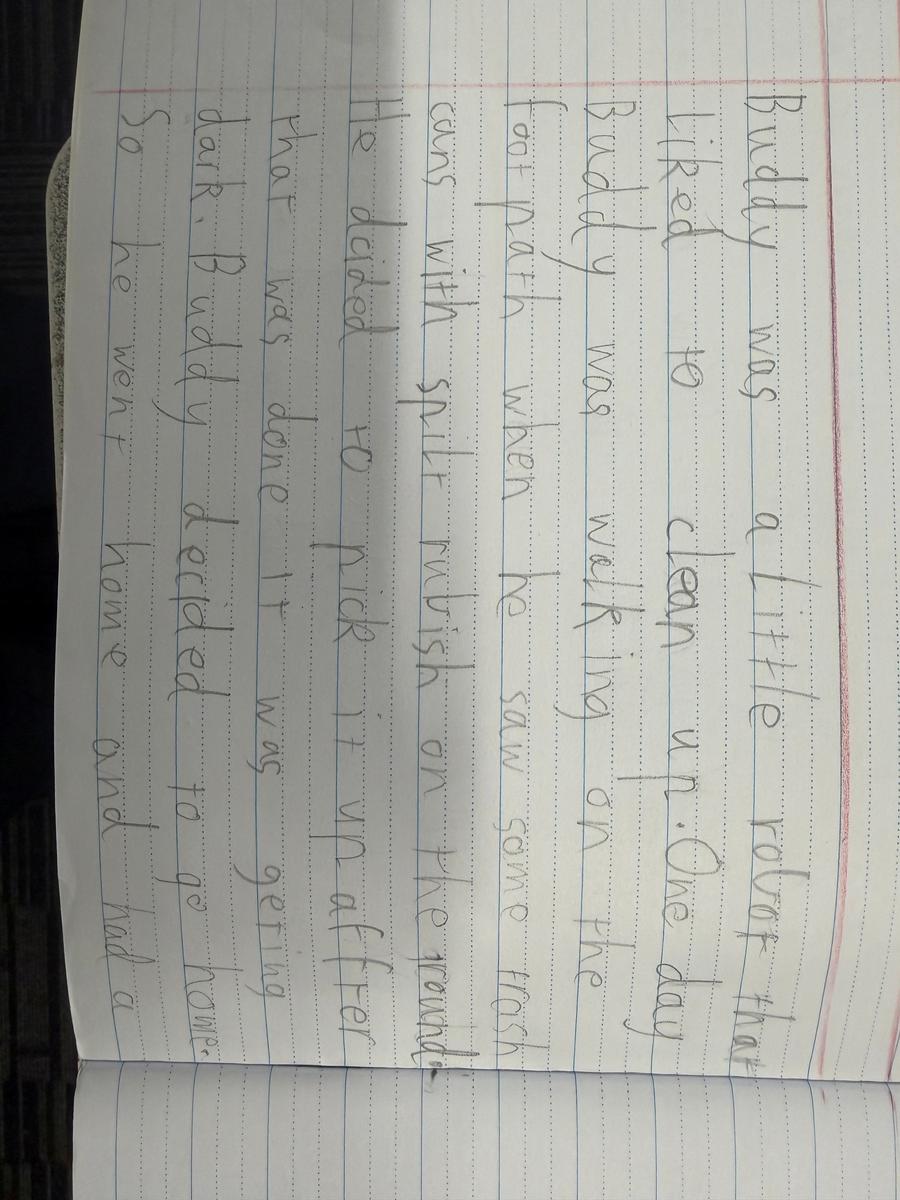 Buddy was a little robot that
Liked to clean up. One day
Buddy was walking on the
foot path when he saw some trash
cans with spilt rubish on the ground.
He dcided to pick it up after
that was done it was geting
dark. Buddy decided to go home.
So he went home and had a